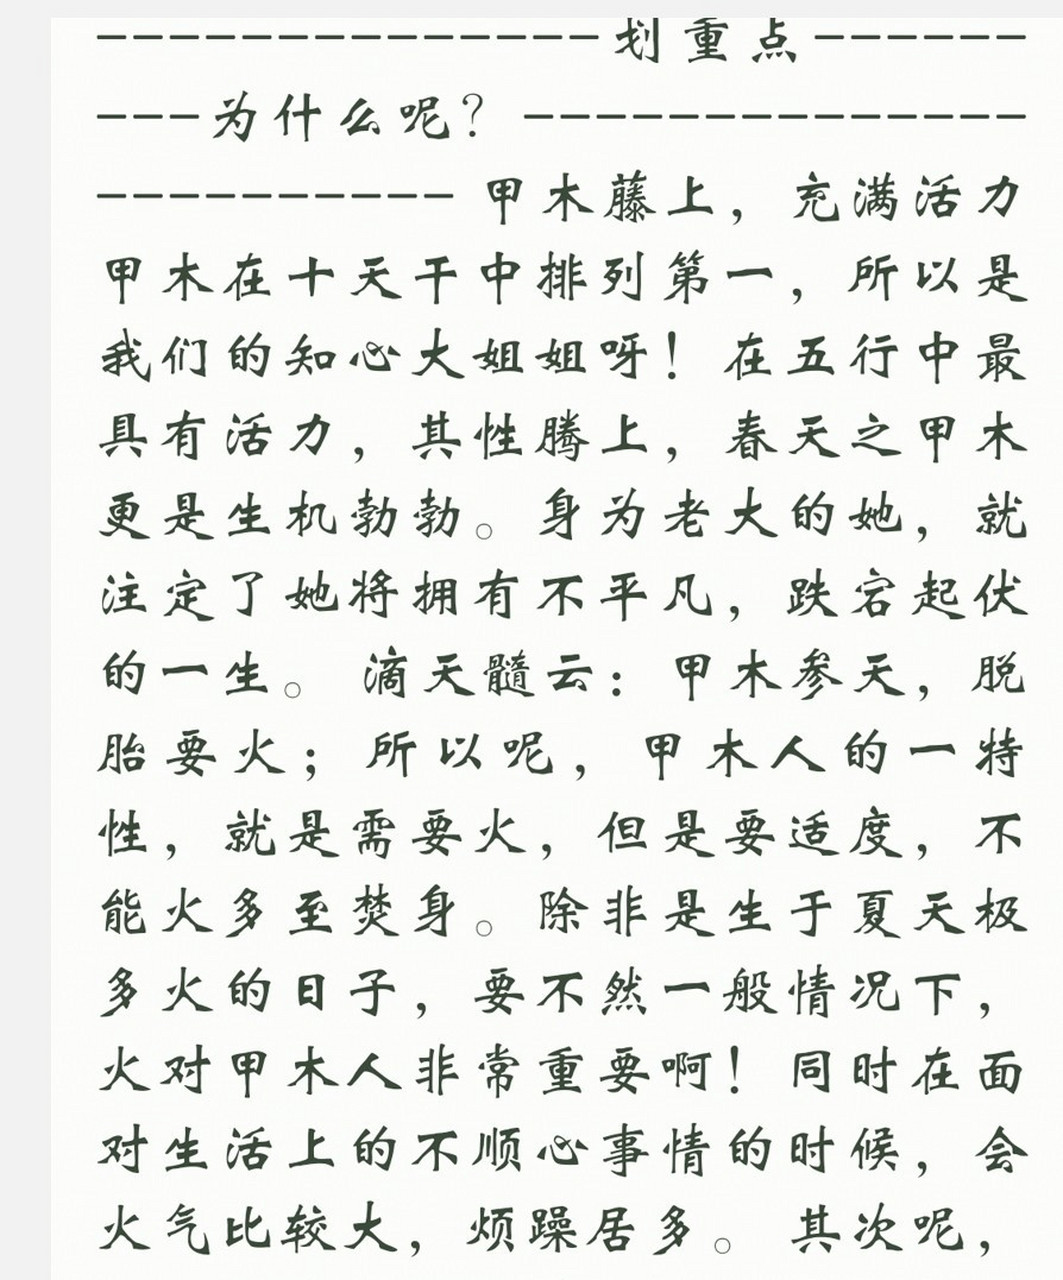 ---------------划重点------
---为什么呢？--------------
----------甲木藤上，充满活力
甲木在十天干中排列第一，所以是
我们的知心大姐姐呀！在五行中最
具有活力，其性腾上，春天之甲木
更是生机勃勃。身为老大的她，就
注定了她将拥有不平凡，跌宕起伏
的一生。 滴天髓云：甲木参天，脱
胎要火；所以呢，甲木人的一特
性，就是需要火，但是要适度，不
能火多至焚身。除非是生于夏天极
多火的日子，要不然一般情况下，
火对甲木人非常重要啊！同时在面
对生活上的不顺心事情的时候，会
火气比较大，烦躁居多。 其次呢，